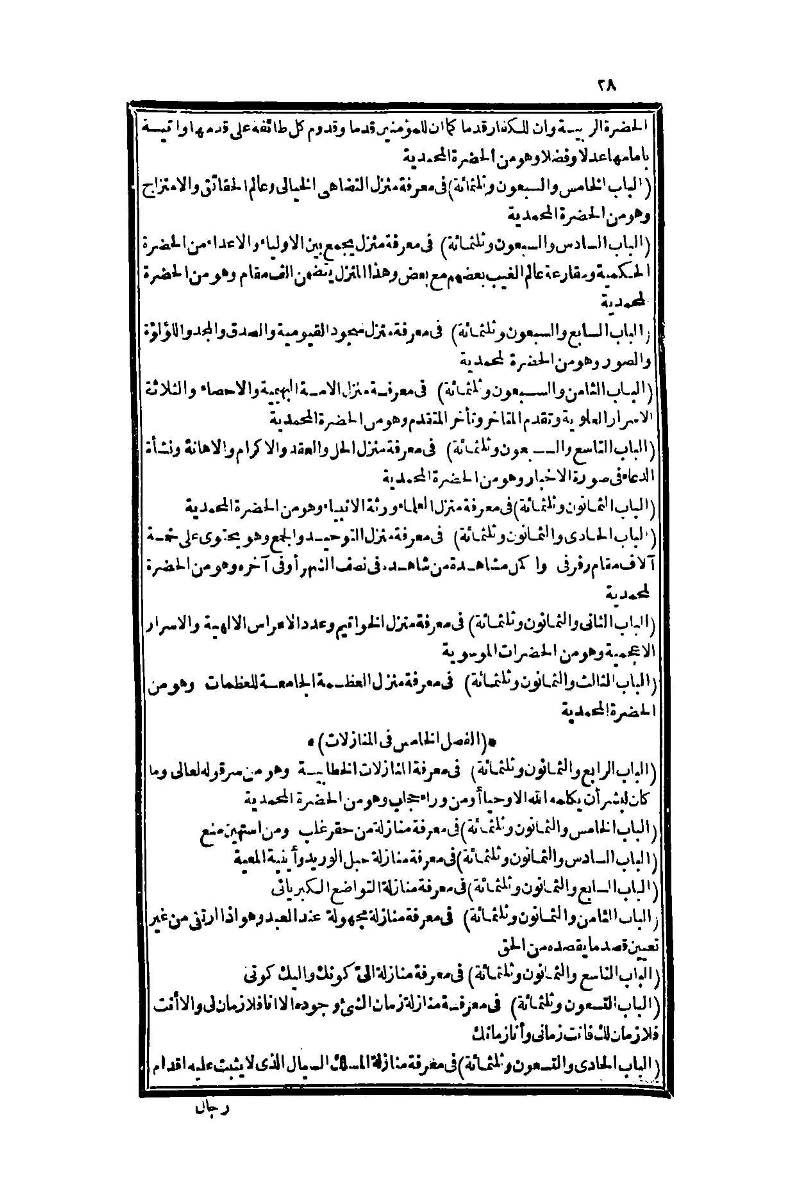 ٢٨
الحضرة الربيـة وان للكفار قدما كما ان للمؤمنين قدما وقدوم كل طائفة على قدمها وآتيـة
بامامها عدلا وفضلا وهو من الحضرة المحمدية
(الباب الخامس والسبعون وثلثمائة) فى معرفة منزل التضاهى الخيالى وعالم الحقائق والامتزاج
وهو من الحضرة المحمدية
(الباب السادس والسبعون وثلثمائة) فى معرفة منزل يجمع بين الاولياء والاعداء من الحضرة
الحكمية ومقارعة عالم الغيب بعضهم مع بعض وهذا المنزل يتضمن الف مقام وهو من الحضرة
المحمدية
(الباب السابع والسبعون وثلثمائة) فى معرفة منزل سجود القيومية والصدق والمجد واللؤلؤة
والصور وهو من الحضرة المحمدية
(الباب الثامن والسبعون وثلثمائة) فى معرفة منزل الامة البهيمية والاحصاء والثلاثة
الاسرار العلوية وتقدم المتاخر وتأخر المتقدم وهو من الحضرة المحمدية
(الباب التاسع والسبعون وثلثمائة) فى معرفة منزل الحل والعقد والاكرام والاهانة ونشأة
الدعاء فى صورة الاخبار وهو من الحضرة المحمدية
(الباب الثمانون وثلثمائة) فى معرفة منزل العلماء ورثة الانبياء وهو من الحضرة المحمدية
(الباب الحادى والثمانون وثلثمائة) فى معرفة منزل التوحيد والجمع وهو يحتوى على خمسة
آلاف مقام رفرفى واكمل مشاهدة من شاهده فى نصف الشهر أو فى آخره وهو من الحضرة
المحمدية
(الباب الثانى والثمانون وثلثمائة) فى معرفة منزل الخواتيم وعدد الاعراس الالهية والاسرار
الاعجمية وهو من الحضرات الموسوية
(الباب الثالث والثمانون وثلثمائة) فى معرفة منزل العظمة الجامعة للعظمات وهو من
الحضرة المحمدية
*(الفصل الخامس فى المنازلات)*
(الباب الرابع والثمانون وثلثمائة) فى معرفة المنازلات الخطابية وهو من سر قوله تعالى وما
كان لبشر أن يكلمه الله الا وحيا أو من وراء حجاب وهو من الحضرة المحمدية
(الباب الخامس والثمانون وثلثمائة) فى معرفة منازلة من حقر غلب ومن استهين منع
(الباب السادس والثمانون وثلثمائة) فى معرفة منازلة حبل الوريد وأينية المعية
(الباب السابع والثمانون وثلثمائة) فى معرفة منازلة التواضع الكبريائى
(الباب الثامن والثمانون وثلثمائة) فى معرفة منازلة مجهولة عند العبد وهو اذا ارتقى من غير
تعيين قصد ما يقصده من الحق
(الباب التاسع والثمانون وثلثمائة) فى معرفة منازلة الىّ كونك واليك كونى
(الباب التسعون وثلثمائة) فى معرفة منازلة زمان الشئ وجوده الا انا فلا زمان لى والا أنت
فلا زمان لك فانت زمانى وأنا زمانك
(الباب الحادى والتسعون وثلثمائة) فى معرفة منازلة المسلك السيال الذى لا يثبت عليه اقدام
رجال